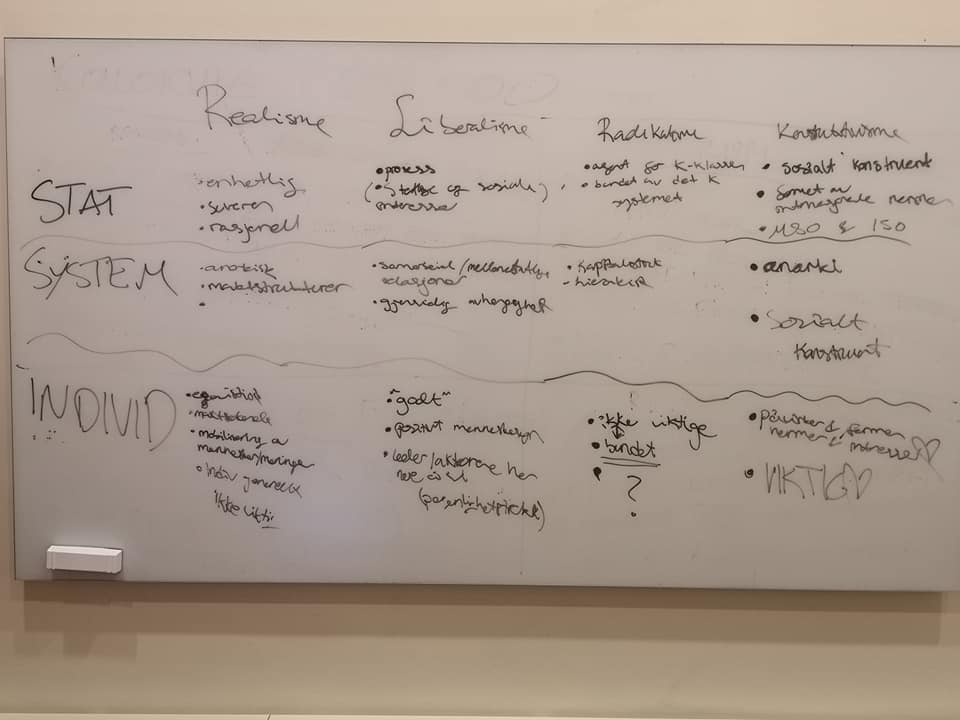 Realisme
Liberalisme
Radikalisme
Konstruktivisme
STAT
• enhetlig
• suveren
• rasjonell
• prosess
(• Statlige og sosiale)
interesser
• agent for K-klassen
• bundet av det K
systemet
• Sosialt konstruert
• formet av
internasjonale normer
• MSO & ISO
SYSTEM
• anarkisk
• maktstrukturer
•
• samarbeid/mellomstatlige
relasjoner
• gjensidig avhengighet
• Kapitalistisk
- hierarkisk
• anarki
• Sozialt
Konstruert
INDIVID
• egoistisk
• mobilisering av
mennesker/meninger
• Indiv generelt
ikke viktig
• "godt"
• positivt menneskesyn
• leder/aktørene her
(personlighetstrekk)
• ikke viktige
• bundet
•
?
• påvirker & former
normer & interesser ♡
• VIKTIG ♡